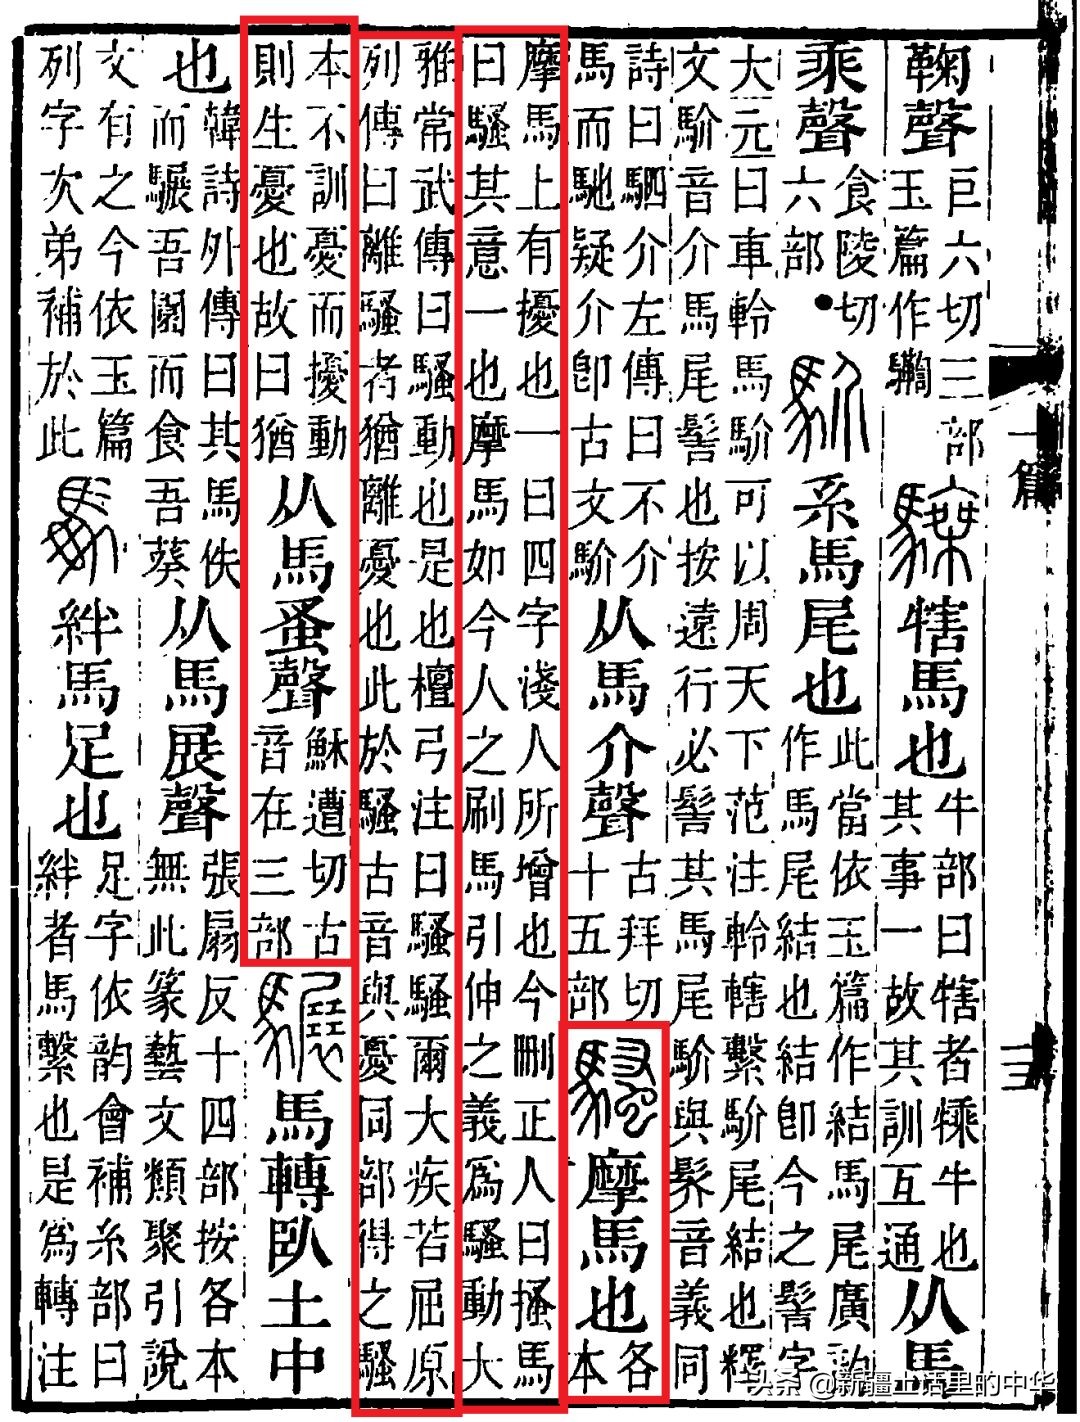 鞠聲
巨六切三部
玉篇作驧
騬
犗馬也
牛部曰犗者騬牛也
其事一故其訓互通
从馬
乘聲
食陵切
六部
●
䭸
系馬尾也
此當依玉篇作結馬尾廣韵
作馬尾結也結卽今之髻字
大元曰車軨馬䭸可以周天下范注軨轄繫䭸尾結也釋
文䭸音介馬尾髻也按遠行必髻其馬尾䭸與䯰音義同
詩曰駟介左傳曰不介
馬而馳疑介卽古文䭸
从馬介聲
古拜切
十五部
騷
摩馬也
各
本
摩馬上有擾也一曰四字淺人所增也今刪正人曰搔馬
曰騷其意一也摩馬如今人之刷馬引伸之義爲騷動大
雅常武傳曰騷動也是也檀弓注曰騷騷爾大疾若屈原
列傳曰離騷者猶離憂也此於騷古音與憂同部得之騷
本不訓憂而擾動
則生憂也故曰猶
从馬蚤聲
穌遭切古
音在三部
𩥇
馬轉臥土中
也
韓詩外傳曰其馬佚
而𩥇吾園而食吾葵
从馬展聲
張扇反十四部按各本
無此篆藝文類聚引說
文有之今依玉篇
列字次弟補於此
馽
絆馬足也
足字依韵會補糸部曰
絆者馬繫也是爲轉注
頭条 @新疆土话里的中华